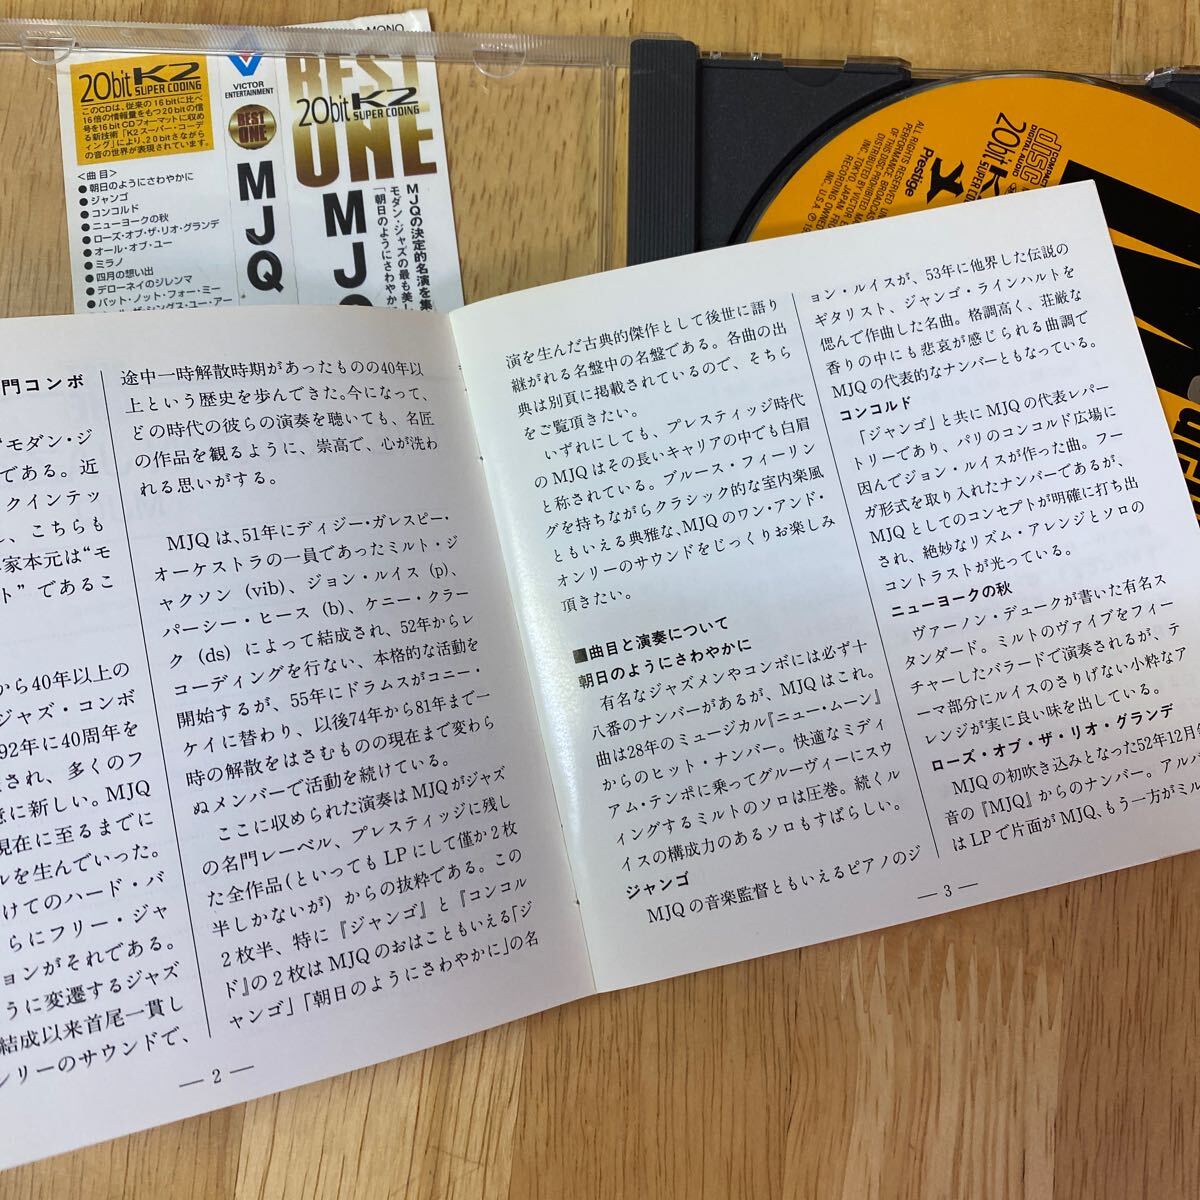 MONO
20bit K2
SUPER CODING
このCDは、従来の16bitに比べ
16倍の情報量をもつ20bitの信
号を16bit CDフォーマットに収め
る新技術「K2スーパー・コーデ
ィング」により、20bitさながら
の音の世界が表現されています。
<曲目>
●朝日のようにさわやかに
●ジャンゴ
●コンコルド
●ニューヨークの秋
●ローズ・オブ・ザ・リオ・グランデ
●オール・オブ・ユー
●ミラノ
●四月の想い出
●デローネイのジレンマ
●バット・ノット・フォー・ミー
VICTOR
ENTERTAINMENT
BEST
ONE
MJQ
BEST
20bit K2
SUPER CODING
ONE
MJQ
MJQの決定的名演を集
モダン・ジャズの最も美し
「朝日のようにさわやか
COMPACT
disc
DIGITAL AUDIO
20bit K2
SUPER CODING
Prestige
門コンボ
“モダン・ジ
である。近
クインテッ
、こちらも
家本元は“モ
ト”であるこ
から40年以上の
ジャズ・コンボ
92年に40周年を
され、多くのフ
に新しい。MJQ
現在に至るまでに
ルを生んでいった。
けてのハード・バ
らにフリー・ジャ
ョンがそれである。
うに変遷するジャズ
結成以来首尾一貫し
ンリーのサウンドで、
途中一時解散時期があったものの40年以
上という歴史を歩んできた。今になって、
どの時代の彼らの演奏を聴いても、名匠
の作品を観るように、崇高で、心が洗わ
れる思いがする。
MJQは、51年にディジー・ガレスピー・
オーケストラの一員であったミルト・ジ
ャクソン(vib)、ジョン・ルイス(p)、
パーシー・ヒース(b)、ケニー・クラー
ク(ds)によって結成され、52年からレ
コーディングを行ない、本格的な活動を
開始するが、55年にドラムスがコニー・
ケイに替わり、以後74年から81年まで一
時の解散をはさむものの現在まで変わら
ぬメンバーで活動を続けている。
ここに収められた演奏はMJQがジャズ
の名門レーベル、プレスティッジに残し
た全作品(といってもLPにして僅か2枚
半しかないが)からの抜粋である。この
2枚半、特に『ジャンゴ』と『コンコル
ド』の2枚はMJQのおはこともいえる「ジ
ャンゴ」「朝日のようにさわやかに」の名
— 2 —
演を生んだ古典的傑作として後世に語り
継がれる名盤中の名盤である。各曲の出
典は別頁に掲載されているので、そちら
をご覧頂きたい。
いずれにしても、プレスティッジ時代
のMJQはその長いキャリアの中でも白眉
と称されている。ブルース・フィーリン
グを持ちながらクラシック的な室内楽風
ともいえる典雅な、MJQのワン・アンド・
オンリーのサウンドをじっくりお楽しみ
頂きたい。
■曲目と演奏について
朝日のようにさわやかに
有名なジャズメンやコンボには必ず十
八番のナンバーがあるが、MJQはこれ。
曲は28年のミュージカル『ニュー・ムーン』
からのヒット・ナンバー。快適なミディ
アム・テンポに乗ってグルーヴィーにスウ
ィングするミルトのソロは圧巻。続くル
イスの構成力のあるソロもすばらしい。
ジャンゴ
MJQの音楽監督ともいえるピアノのジ
ョン・ルイスが、53年に他界した伝説の
ギタリスト、ジャンゴ・ラインハルトを
偲んで作曲した名曲。格調高く、荘厳な
香りの中にも悲哀が感じられる曲調で
MJQの代表的なナンバーともなっている。
コンコルド
「ジャンゴ」と共にMJQの代表レパー
トリーであり、パリのコンコルド広場に
因んでジョン・ルイスが作った曲。フー
ガ形式を取り入れたナンバーであるが、
MJQとしてのコンセプトが明確に打ち出
され、絶妙なリズム・アレンジとソロの
コントラストが光っている。
ニューヨークの秋
ヴァーノン・デュークが書いた有名ス
タンダード。ミルトのヴァイブをフィー
チャーしたバラードで演奏されるが、テ
ーマ部分にルイスのさりげない小粋なア
レンジが実に良い味を出している。
ローズ・オブ・ザ・リオ・グランデ
MJQの初吹き込みとなった52年12月
音の『MJQ』からのナンバー。アルバ
はLPで片面がMJQ、もう一方がミル
— 3 —